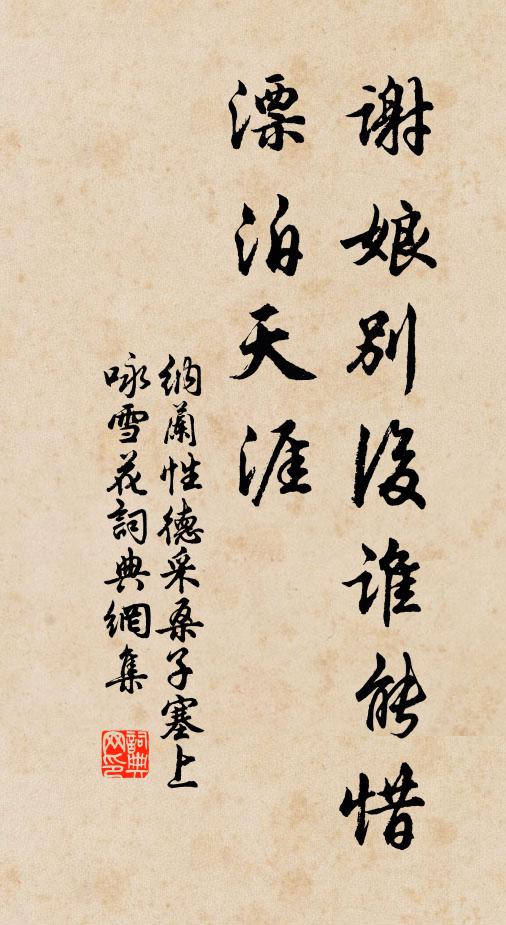 謝娘別後誰能惜
漂泊天涯
納蘭性德采桑子塞上
咏雪花詞典網集
詞典網印